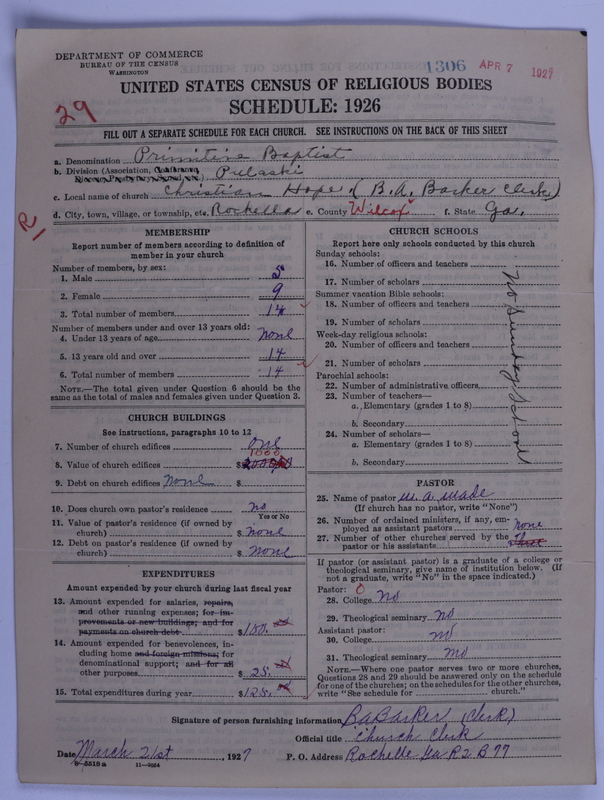 DEPARTMENT OF COMMERCE
BUREAU OF THE CENSUS
WASHINGTON
1306 APR 7 1927
UNITED STATES CENSUS OF RELIGIOUS BODIES
SCHEDULE: 1926
29
FILL OUT A SEPARATE SCHEDULE FOR EACH CHURCH. SEE INSTRUCTIONS ON THE BACK OF THIS SHEET
a. Denomination Primitive Baptist
b. Division (Association, Conference, Diocese, Presbytery, Synod, etc.) Pulaski
c. Local name of church Christian Hope (B. A. Barker Clerk)
d. City, town, village, or township, etc. Rochelle e. County Wilcox f. State Ga.
R1
MEMBERSHIP
Report number of members according to definition of member in your church
Number of members, by sex:
1. Male 5
2. Female 9
3. Total number of members 14
Number of members under and over 13 years old:
4. Under 13 years of age none
5. 13 years old and over 14
6. Total number of members 14
NOTE.—The total given under Question 6 should be the same as the total of males and females given under Question 3.
CHURCH BUILDINGS
See instructions, paragraphs 10 to 12
7. Number of church edifices one
1000
8. Value of church edifices $
9. Debt on church edifices none $
10. Does church own pastor's residence no
Yes or No
11. Value of pastor's residence (if owned by church) $ none
12. Debt on pastor's residence (if owned by church) $ none
EXPENDITURES
Amount expended by your church during last fiscal year
13. Amount expended for salaries, repairs, and other running expenses; for improvements or new buildings; and for payments on church debt $100.
14. Amount expended for benevolences, including home and foreign missions; for denominational support; and for all other purposes $ 25.
15. Total expenditures during year $125.
CHURCH SCHOOLS
Report here only schools conducted by this church
Sunday schools:
16. Number of officers and teachers
17. Number of scholars
Summer vacation Bible schools:
18. Number of officers and teachers
19. Number of scholars
Week-day religious schools:
20. Number of officers and teachers
21. Number of scholars
Parochial schools:
22. Number of administrative officers
23. Number of teachers—
a. Elementary (grades 1 to 8)
b. Secondary
24. Number of scholars—
a. Elementary (grades 1 to 8)
b. Secondary
No Sunday School
PASTOR
25. Name of pastor W. A. Wade
(If church has no pastor, write "None")
26. Number of ordained ministers, if any, employed as assistant pastors none
27. Number of other churches served by the pastor or his assistants Three
If pastor (or assistant pastor) is a graduate of a college or theological seminary, give name of institution below. (If not a graduate, write "No" in the space indicated.)
Pastor: 0
28. College No
29. Theological seminary no
Assistant pastor:
30. College no
31. Theological seminary no
NOTE.—Where one pastor serves two or more churches, Questions 28 and 29 should be answered only on the schedule for one of the churches; on the schedules for the other churches, write "See schedule for church."
Signature of person furnishing information B A Barker (Clerk)
Official title Church Clerk
Date March 21st, 1927 P. O. Address Rochelle Ga R 2 B 77
8—5518 a 11—9054